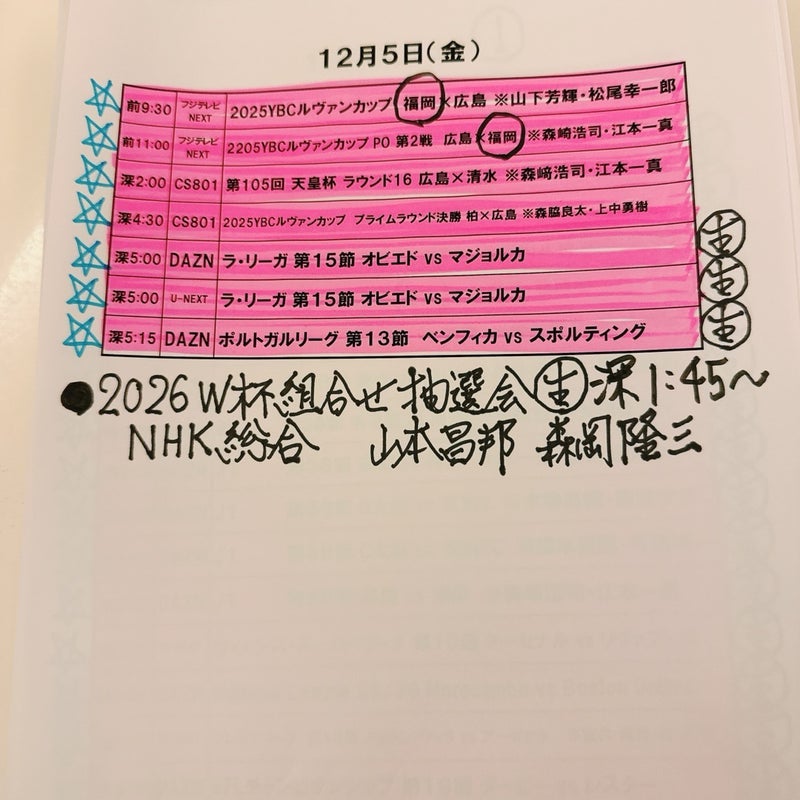 12月5日(金)
前9:30 フジテレビNEXT 2025YBCルヴァンカップ 福岡×広島 ※山下芳輝・松尾幸一郎
前11:00 フジテレビNEXT 2205YBCルヴァンカップ PO 第2戦 広島×福岡 ※森崎浩司・江本一真
深2:00 CS801 第105回 天皇杯 ラウンド16 広島×清水 ※森﨑浩司・江本一真
深4:30 CS801 2025YBCルヴァンカップ プライムラウンド決勝 柏×広島 ※森脇良太・上中勇樹
深5:00 DAZN ラ・リーガ 第15節 オビエド vs マジョルカ 生
深5:00 U-NEXT ラ・リーガ 第15節 オビエド vs マジョルカ 生
深5:15 DAZN ポルトガルリーグ 第13節 ベンフィカ vs スポルティング 生
●2026W杯組合せ抽選会 生 深1:45〜
NHK総合 山本昌邦 森岡隆三